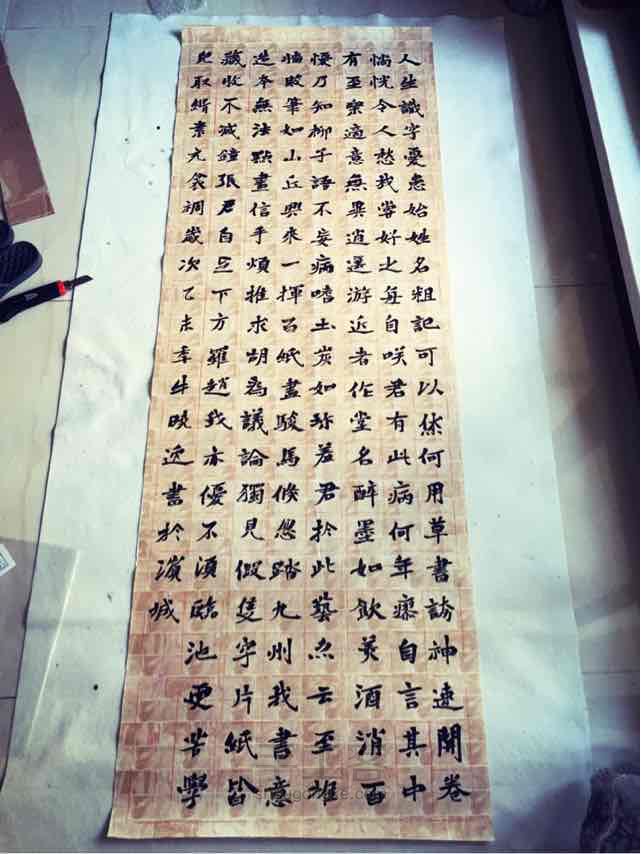 人生識字憂患始姓名粗記可以休何用草書誇神速開卷
惝恍令人愁我嘗好之每自咲君有此病何年瘳自言其中
有至樂適意無異逍遥游近者作堂名醉墨如飲美酒消百
憂乃知柳子語不妄病嗜土炭如珍羞君於此藝亦云至堆
牆敗筆如山丘興來一揮百紙盡駿馬倏忽踏九州我書意
造本無法點畫信手煩推求胡爲議論獨見假隻字片紙皆
藏收不減鍾張君自足下方羅趙我亦優不須臨池更苦學
完取絹素充衾裯歲次乙未季牛曉逸書於濱城